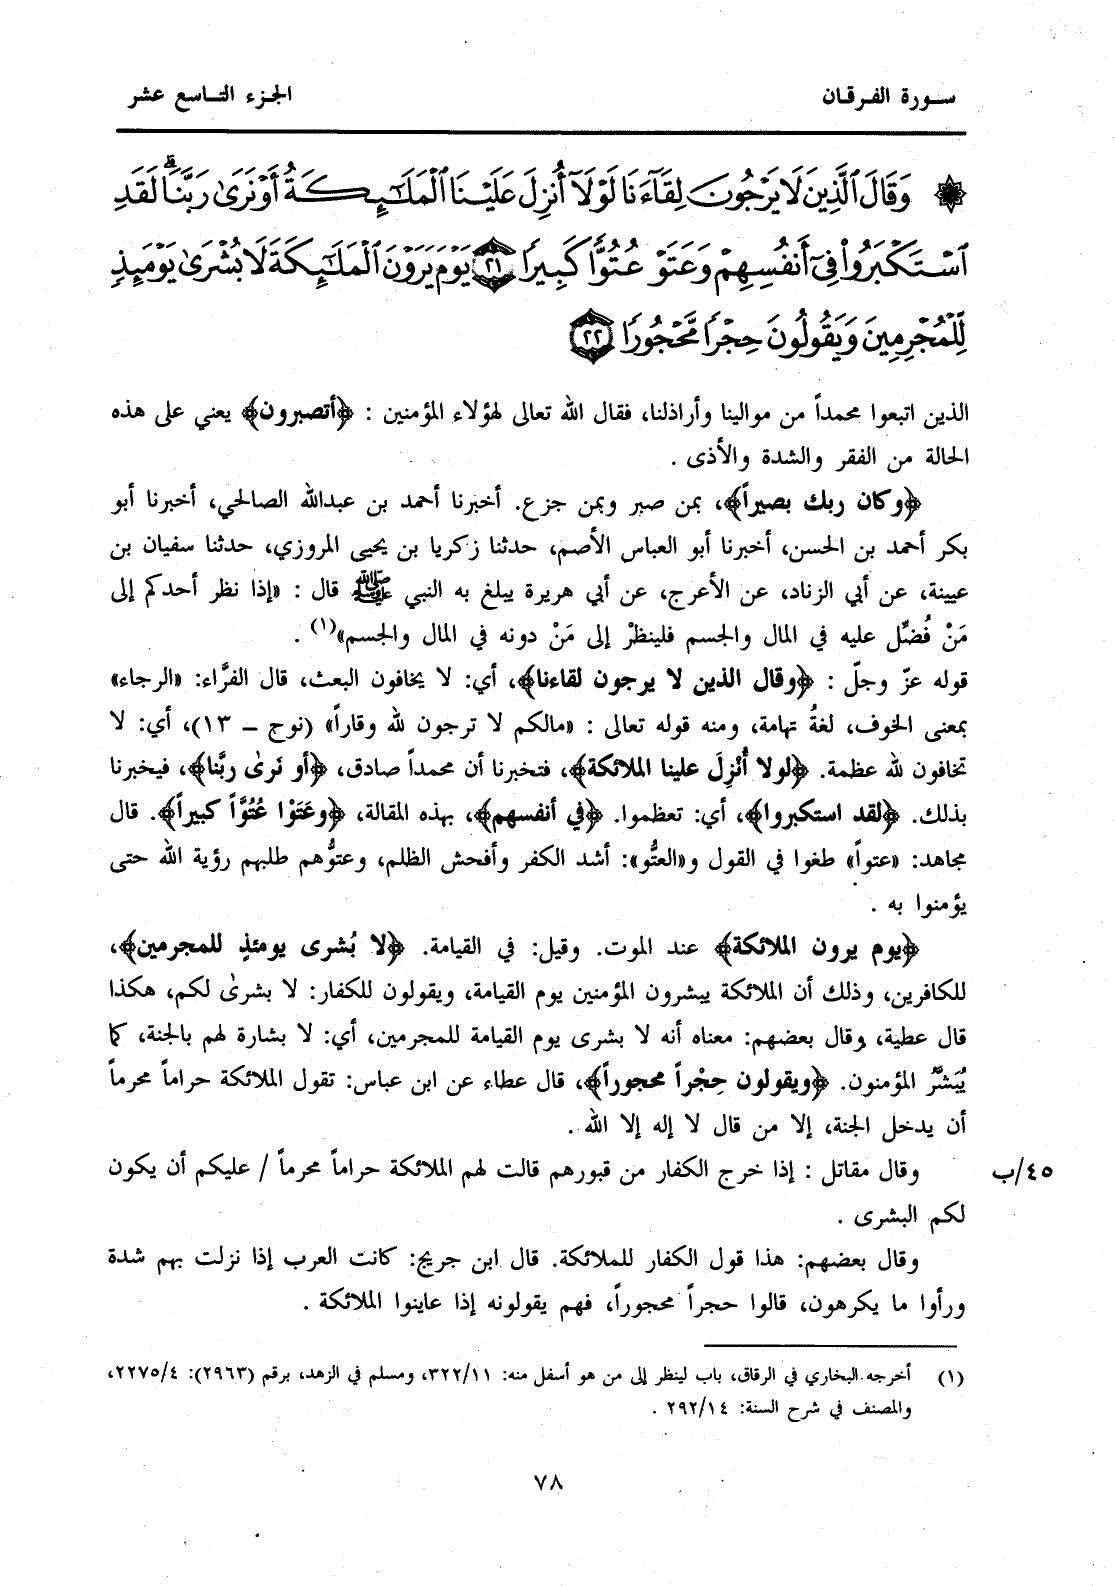 سورة الفرقان
الجزء التاسع عشر
۞ وَقَالَ ٱلَّذِينَ لَا يَرْجُونَ لِقَآءَنَا لَوْلَآ أُنزِلَ عَلَيْنَا ٱلْمَلَٰٓئِكَةُ أَوْ نَرَىٰ رَبَّنَا ۗ لَقَدِ
ٱسْتَكْبَرُوا۟ فِىٓ أَنفُسِهِمْ وَعَتَوْ عُتُوًّا كَبِيرًا ٢١ يَوْمَ يَرَوْنَ ٱلْمَلَٰٓئِكَةَ لَا بُشْرَىٰ يَوْمَئِذٍ
لِّلْمُجْرِمِينَ وَيَقُولُونَ حِجْرًا مَّحْجُورًا ٢٢
الذين اتبعوا محمداً من موالينا وأراذلنا، فقال الله تعالى لهؤلاء المؤمنين : ﴿أتصبرون﴾ يعني على هذه
الحالة من الفقر والشدة والأذى .
﴿وكان ربك بصيراً﴾، بمن صبر وبمن جزع. أخبرنا أحمد بن عبدالله الصالحي، أخبرنا أبو
بكر أحمد بن الحسن، أخبرنا أبو العباس الأصم، حدثنا زكريا بن يحيى المروزي، حدثنا سفيان بن
عيينة، عن أبي الزناد، عن الأعرج، عن أبي هريرة يبلغ به النبي ﷺ قال : «إذا نظر أحدكم إلى
مَنْ فُضِّل عليه في المال والجسم فلينظرْ إلى مَنْ دونه في المال والجسم»(١) .
قوله عزّ وجلّ : ﴿وقال الذين لا يرجون لقاءنا﴾، أي: لا يخافون البعث، قال الفرَّاء: «الرجاء»
بمعنى الخوف، لغةُ تهامة، ومنه قوله تعالى : «مالكم لا ترجون لله وقاراً» (نوح – ١٣)، أي: لا
تخافون لله عظمة. ﴿لولا أُنْزِلَ علينا الملائكة﴾، فتخبرنا أن محمداً صادق، ﴿أو نَرىٰ ربَّنا﴾، فيخبرنا
بذلك. ﴿لقد استكبروا﴾، أي: تعظموا. ﴿في أنفسهم﴾، بهذه المقالة، ﴿وعَتَوْا عُتُوَّاً كبيراً﴾. قال
مجاهد: «عتواً» طغوا في القول و«العتُّو»: أشد الكفر وأفحش الظلم، وعتوُّهم طلبهم رؤية الله حتى
يؤمنوا به .
﴿يوم يرون الملائكة﴾ عند الموت. وقيل: في القيامة. ﴿لا بُشرى يومئذٍ للمجرمين﴾،
للكافرين، وذلك أن الملائكة يبشرون المؤمنين يوم القيامة، ويقولون للكفار: لا بشرىٰ لكم، هكذا
قال عطية، وقال بعضهم: معناه أنه لا بشرى يوم القيامة للمجرمين، أي: لا بشارة لهم بالجنة، كما
يُبَشَّرُ المؤمنون. ﴿ويقولون حِجْراً محجوراً﴾، قال عطاء عن ابن عباس: تقول الملائكة حراماً محرماً
أن يدخل الجنة، إلا من قال لا إله إلا الله .
٤٥/ب
وقال مقاتل : إذا خرج الكفار من قبورهم قالت لهم الملائكة حراماً محرماً / عليكم أن يكون
لكم البشرى .
وقال بعضهم: هذا قول الكفار للملائكة. قال ابن جريج: كانت العرب إذا نزلت بهم شدة
ورأوا ما يكرهون، قالوا حجراً محجوراً، فهم يقولونه إذا عاينوا الملائكة .
(١) أخرجه البخاري في الرقاق، باب لينظر إلى من هو أسفل منه: ٣٢٢/١١، ومسلم في الزهد، برقم (٢٩٦٣): ٢٢٧٥/٤،
والمصنف في شرح السنة: ٢٩٢/١٤ .
٧٨